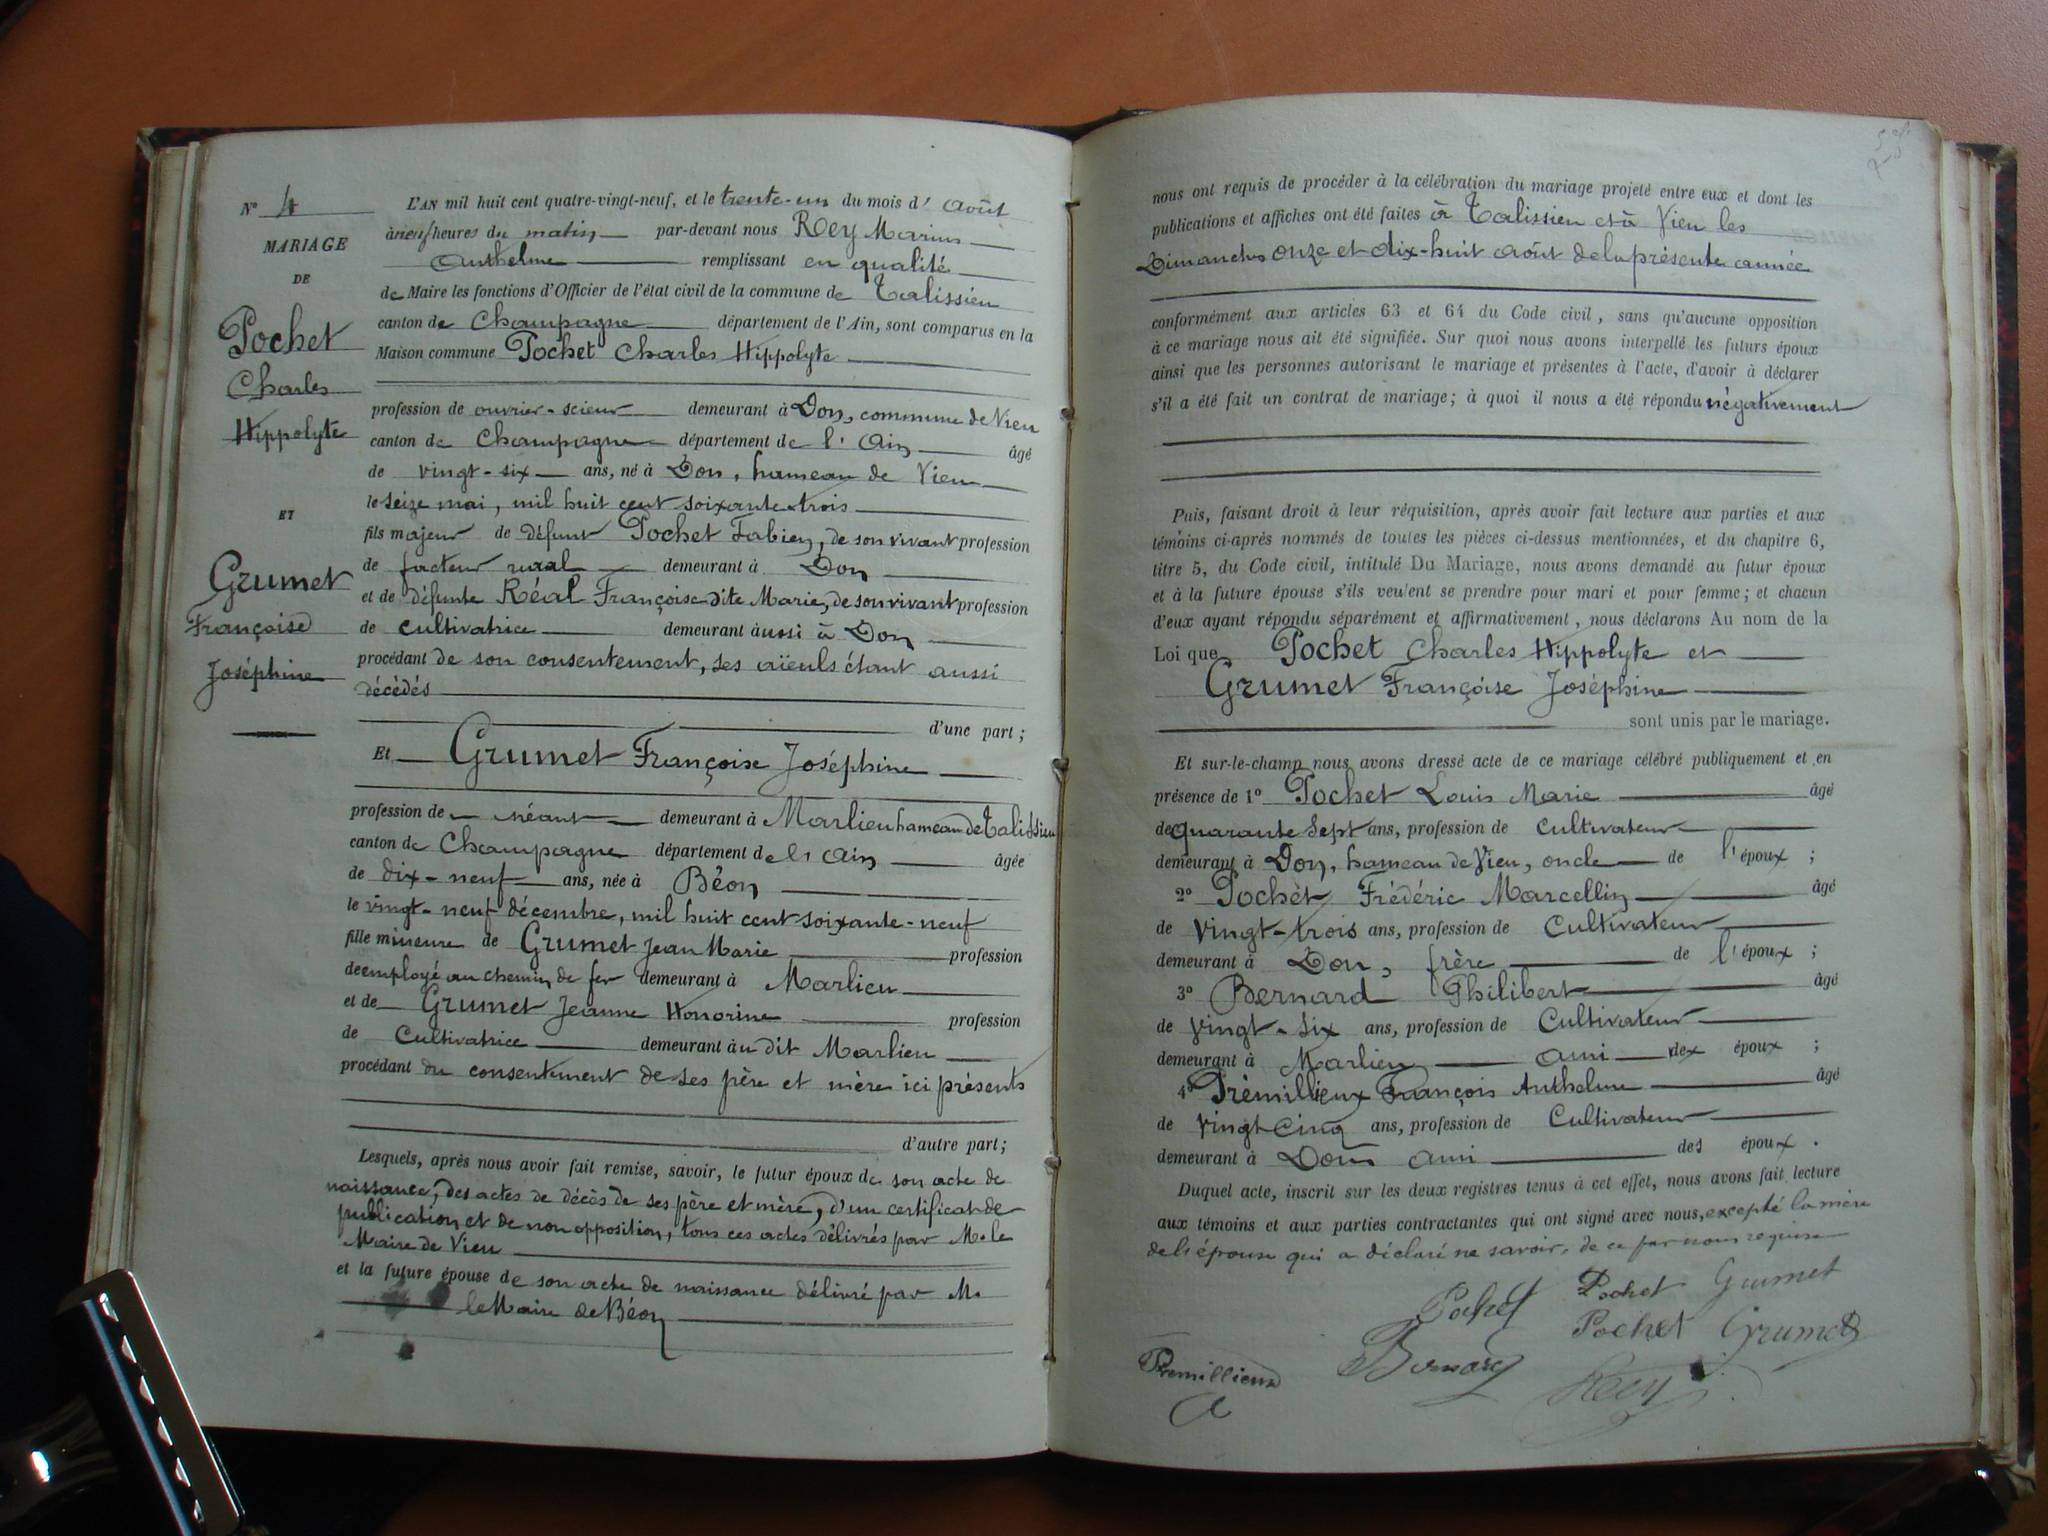 N° 4
MARIAGE
DE
Pochet
Charles
Hippolyte
ET
Grumet
Françoise
Joséphine
L'AN mil huit cent quatre-vingt-neuf, et le trente-un du mois d' Août
à neuf heures du matin par-devant nous Rey Marius
Anthelme remplissant en qualité
de Maire les fonctions d'Officier de l'état civil de la commune de Talissieu
canton de Champagne département de l'Ain, sont comparus en la
Maison commune Pochet Charles Hippolyte
profession de ouvrier-scieur demeurant à Don, commune de Vieu
canton de Champagne département de l' Ain âgé
de vingt-six ans, né à Don, hameau de Vieu
le seize mai, mil huit cent soixante-trois
fils majeur de défunt Pochet Fabien, de son vivant profession
de facteur rural demeurant à Don
et de défunte Réal Françoise dite Marie, de son vivant profession
de cultivatrice demeurant aussi à Don
procédant de son consentement, ses aïeuls étant aussi
décédés
d'une part ;
Et Grumet Françoise Joséphine
profession de néant demeurant à Marlieu hameau de Talissieu
canton de Champagne département de l'Ain âgée
de dix-neuf ans, née à Béon
le vingt-neuf décembre, mil huit cent soixante-neuf
fille mineure de Grumet Jean Marie profession
de employé au chemin de fer demeurant à Marlieu
et de Grumet Jeanne Honorine profession
de Cultivatrice demeurant au dit Marlieu
procédant du consentement de ses père et mère ici présents
d'autre part ;
Lesquels, après nous avoir fait remise, savoir, le futur époux de son acte de
naissance, des actes de décès de ses père et mère, d'un certificat de
publication et de non opposition, tous ces actes délivrés par M. le
Maire de Vieu
et la future épouse de son acte de naissance délivré par M.
le Maire de Béon
nous ont requis de procéder à la célébration du mariage projeté entre eux et dont les
publications et affiches ont été faites à Talissieu et à Vieu les
Dimanches onze et dix-huit août de la présente année
conformément aux articles 63 et 64 du Code civil, sans qu'aucune opposition
à ce mariage nous ait été signifiée. Sur quoi nous avons interpellé les futurs époux
ainsi que les personnes autorisant le mariage et présentes à l'acte, d'avoir à déclarer
s'il a été fait un contrat de mariage ; à quoi il nous a été répondu négativement
Puis, faisant droit à leur réquisition, après avoir fait lecture aux parties et aux
témoins ci-après nommés de toutes les pièces ci-dessus mentionnées, et du chapitre 6,
titre 5, du Code civil, intitulé Du Mariage, nous avons demandé au futur époux
et à la future épouse s'ils veulent se prendre pour mari et pour femme ; et chacun
d'eux ayant répondu séparément et affirmativement, nous déclarons Au nom de la
Loi que Pochet Charles Hippolyte et
Grumet Françoise Joséphine
sont unis par le mariage.
Et sur-le-champ nous avons dressé acte de ce mariage célébré publiquement et en
présence de 1° Pochet Louis Marie âgé
de quarante Sept ans, profession de Cultivateur
demeurant à Don, hameau de Vieu, oncle de l'époux ;
2° Pochet Frédéric Marcellin âgé
de Vingt-trois ans, profession de Cultivateur
demeurant à Don, frère de l'époux ;
3° Bernard Philibert âgé
de Vingt-six ans, profession de Cultivateur
demeurant à Marlieu ami des époux ;
4° Prémillieux François Anthelme âgé
de Vingt Cinq ans, profession de Cultivateur
demeurant à Don ami des époux.
Duquel acte, inscrit sur les deux registres tenus à cet effet, nous avons fait lecture
aux témoins et aux parties contractantes qui ont signé avec nous, excepté la mère
de l'épouse qui a déclaré ne savoir, de ce par nous requise
Pochet Pochet Grumet
Bernard Pochet Grumet
Premillieux Rey